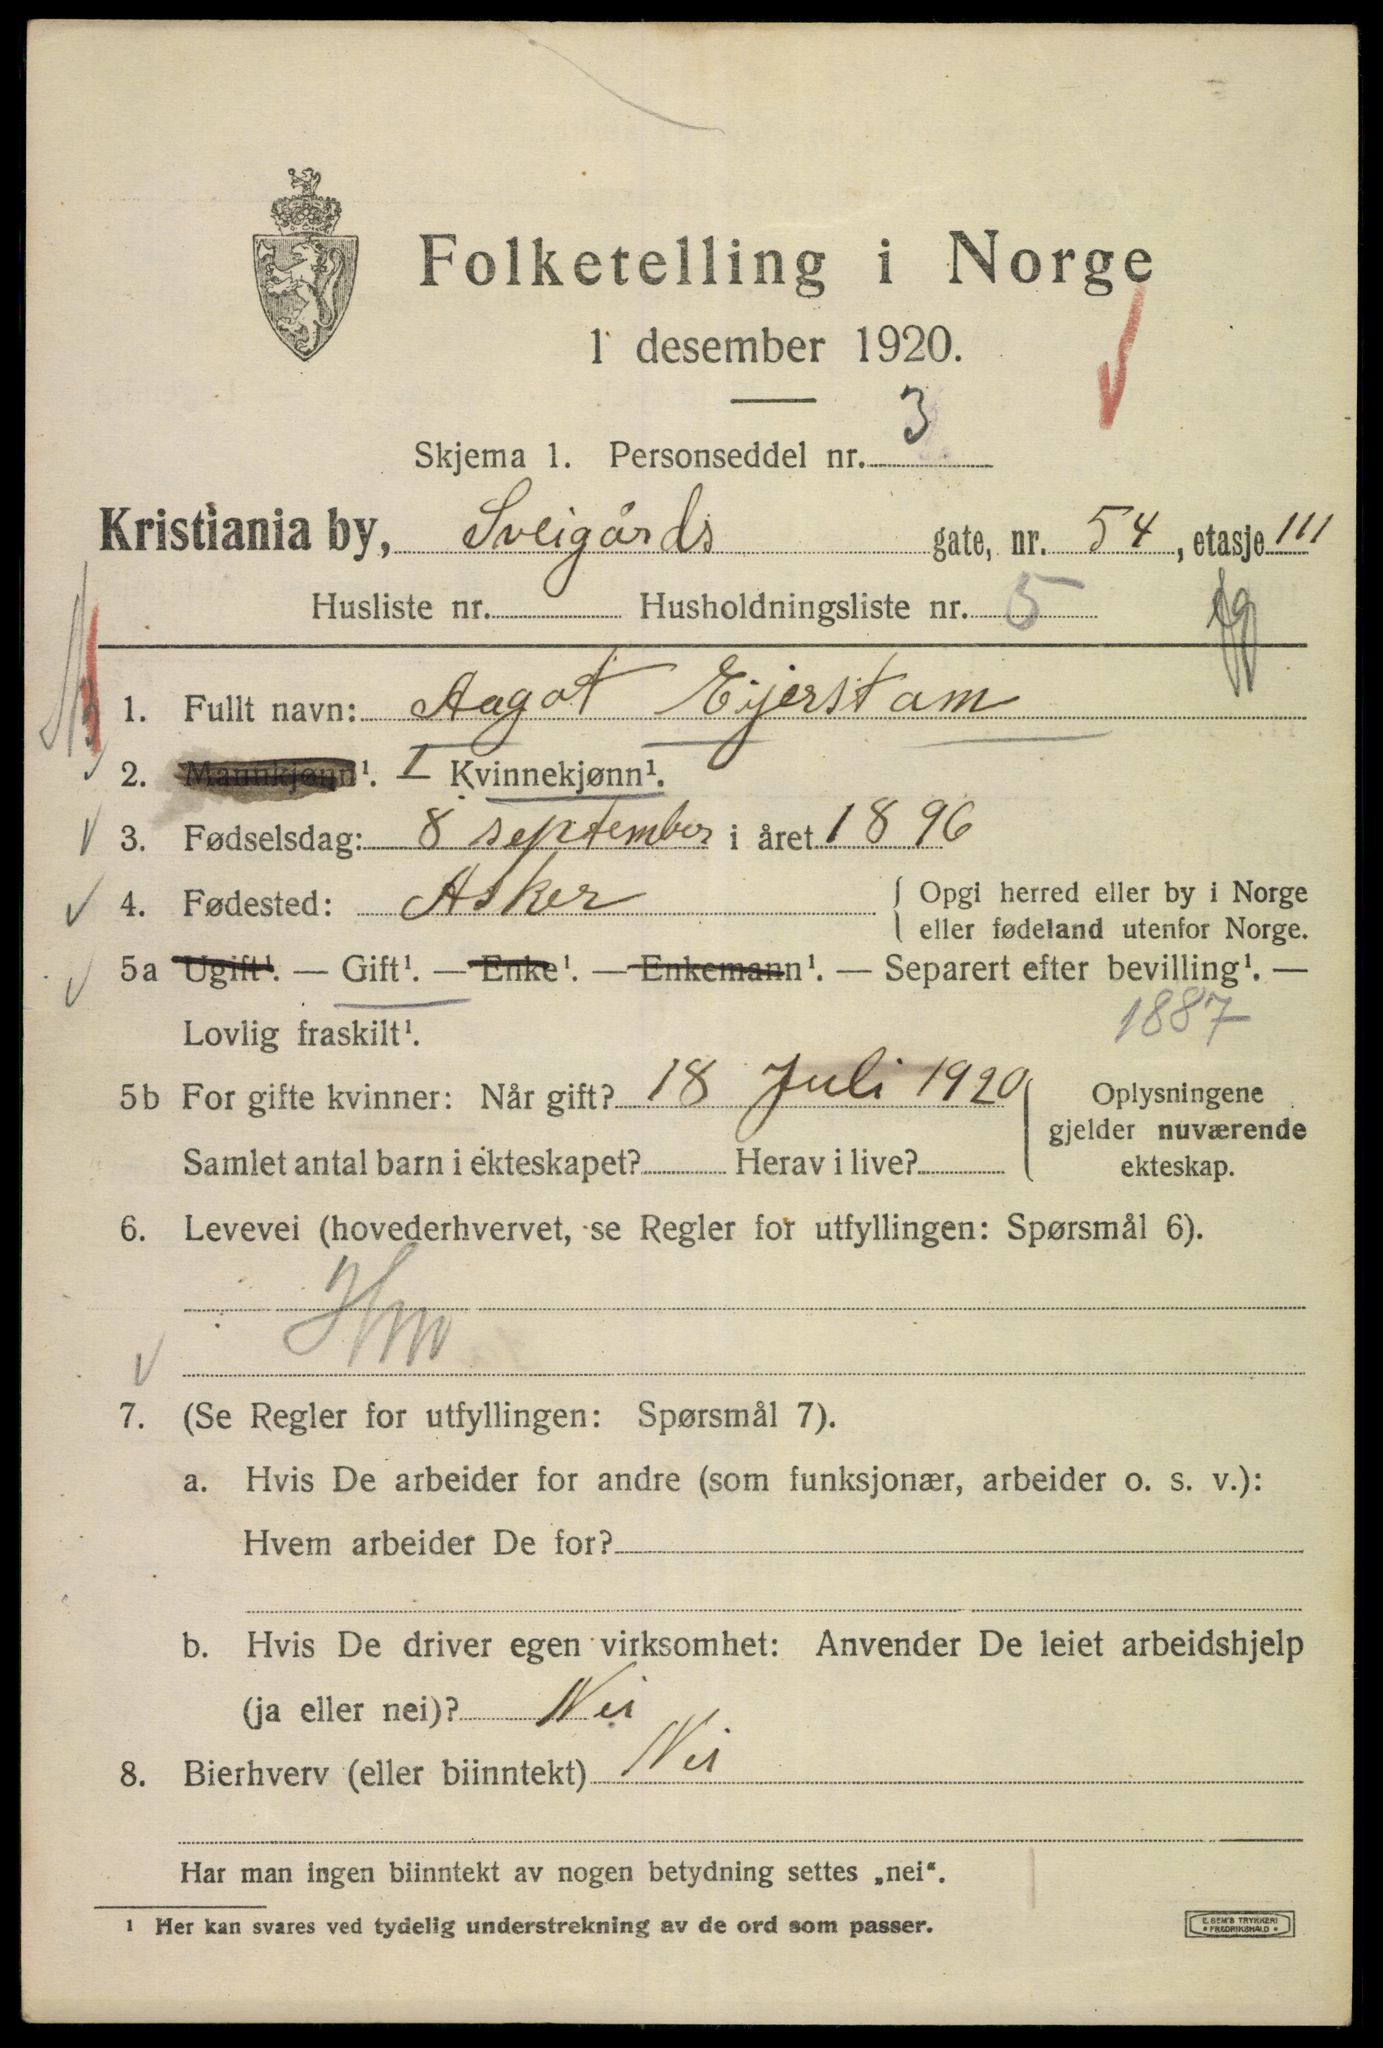 Folketelling i Norge
1 desember 1920.
Skjema 1. Personseddel nr. 3
Kristiania by, Sveigårds gate, nr. 54, etasje 111
Husliste nr. Husholdningsliste nr. 5
1. Fullt navn: Aagot Ejerstam
2. Mannkjønn¹. — Kvinnekjønn¹.
3. Fødselsdag: 8 september i året 1896
4. Fødested: Asker { Opgi herred eller by i Norge
eller fødeland utenfor Norge.
5a Ugift¹. — Gift¹. — Enke¹. — Enkemann¹. — Separert efter bevilling¹. —
Lovlig fraskilt¹. 1887
5b For gifte kvinner: Når gift? 18 Juli 1920
Samlet antal barn i ekteskapet? Herav i live?
Oplysningene
gjelder nuværende
ekteskap.
6. Levevei (hovederhvervet, se Regler for utfyllingen: Spørsmål 6).
Hm
7. (Se Regler for utfyllingen: Spørsmål 7).
a. Hvis De arbeider for andre (som funksjonær, arbeider o. s. v.):
Hvem arbeider De for?
b. Hvis De driver egen virksomhet: Anvender De leiet arbeidshjelp
(ja eller nei)? Nei
8. Bierhverv (eller biinntekt) Nei
Har man ingen biinntekt av nogen betydning settes „nei“.
¹ Her kan svares ved tydelig understrekning av de ord som passer.
E. SEM'S TRYKKERI
• FREDRIKSHALD •